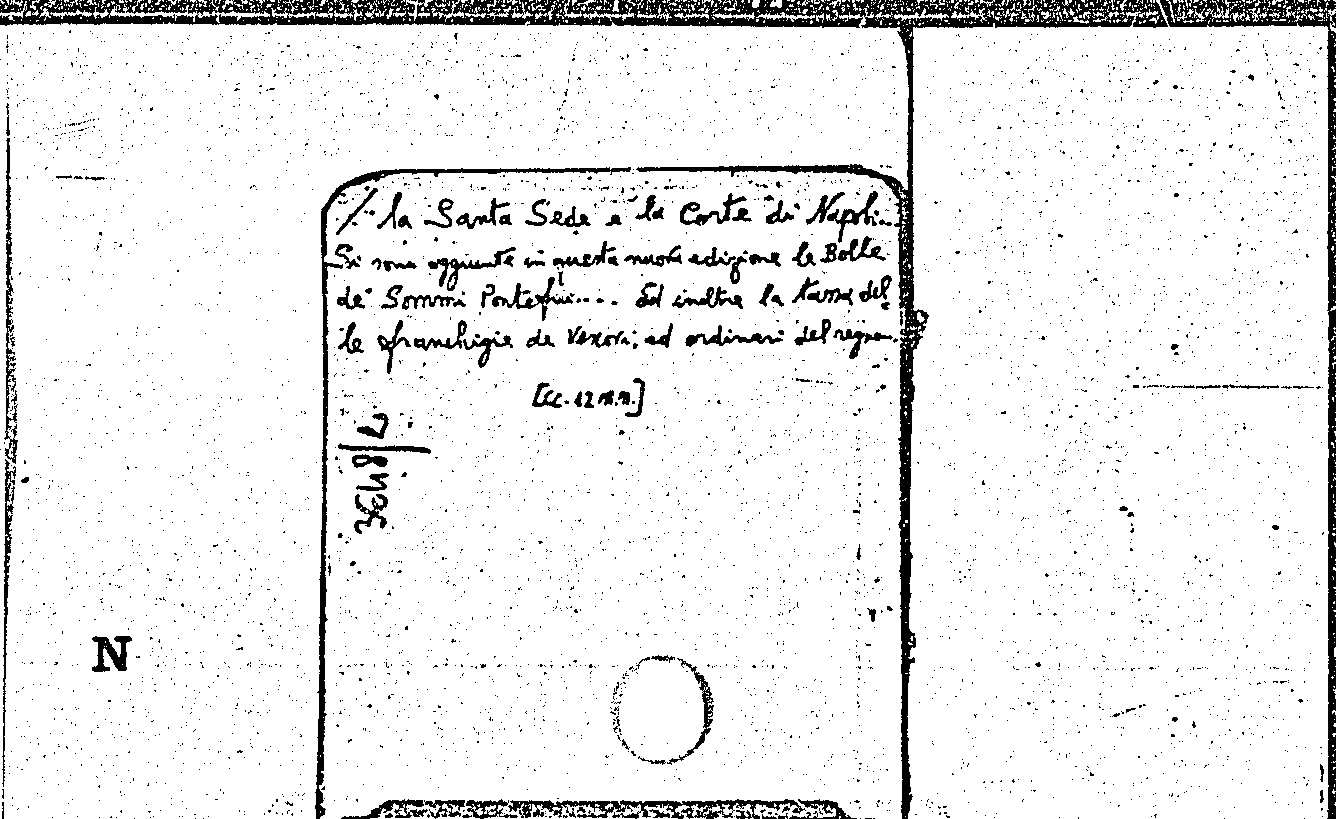 /. la Santa Sede e la Corte di Napoli...
Si sono aggiunte in questa nuova edizione le Bolle
de' Sommi Pontefici.... Ed inoltre la tassa del
le franchigie de Vescovi, ed ordinari del regno..
[cc. 12 n.n.]
N